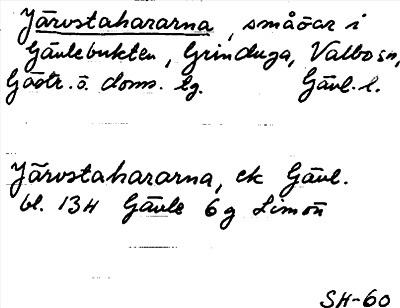 Järvstahararna, småöar i
Gävlebukten, Grinduga, Valbo sn,
Gästr. ö. doms. tg. Gävl. l.
Järvstahararna, ek Gävl.
bl. 13H Gävle 6g Limön
SH-60